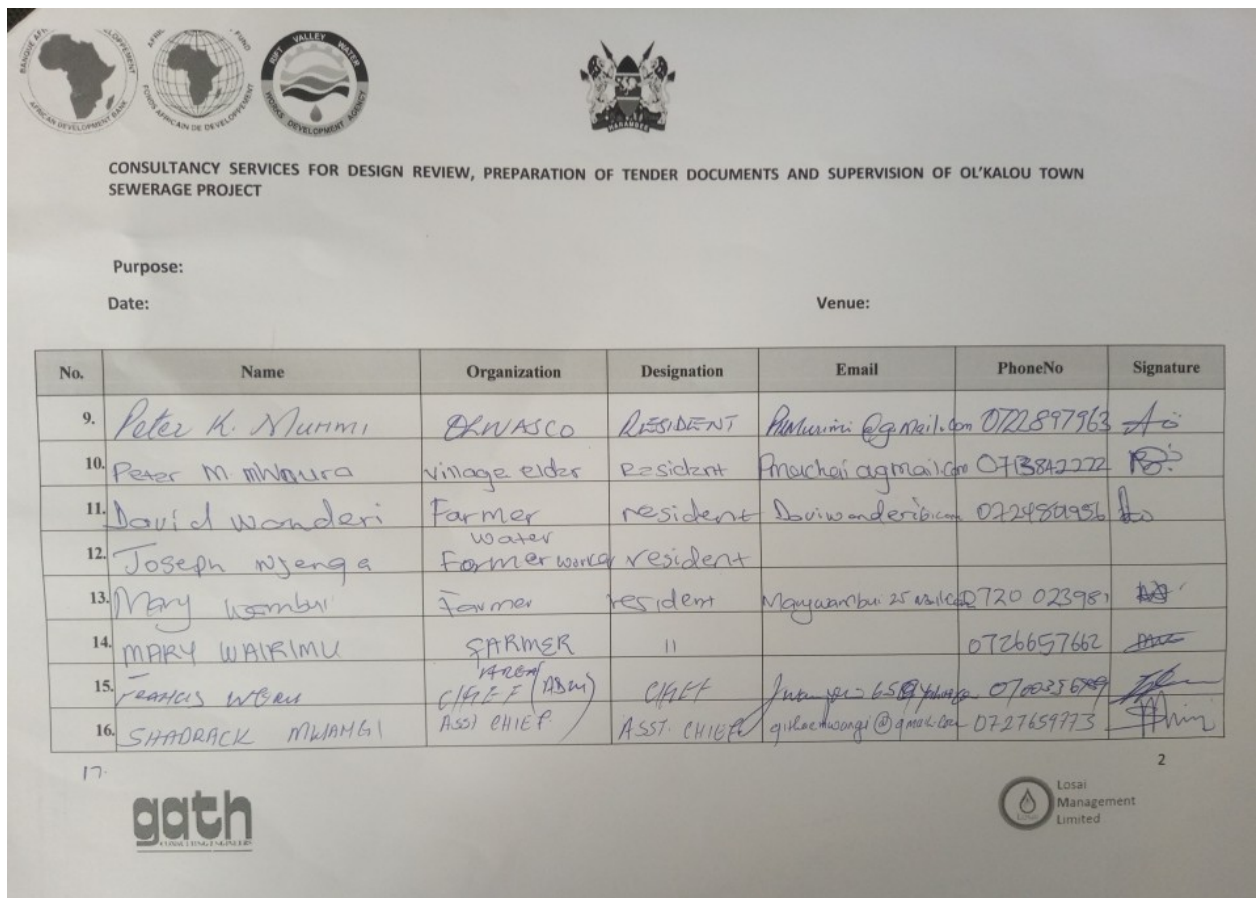 BANQUE AFRICAINE DE DEVELOPPEMENT
AFRICAN DEVELOPMENT BANK
FUND
FONDS AFRICAIN DE DEVELOPPEMENT
RIFT VALLEY WATER
WORKS DEVELOPMENT AGENCY
HARAMBEE
CONSULTANCY SERVICES FOR DESIGN REVIEW, PREPARATION OF TENDER DOCUMENTS AND SUPERVISION OF OL'KALOU TOWN
SEWERAGE PROJECT
Purpose:
Date: Venue:
No. Name Organization Designation Email PhoneNo Signature
9. Peter K. Murimi OLWASCO RESIDENT PKMurimi@gmail.com 0722897963
10. Peter M. mWaura village elder Resident 0713842222
11. David wanderi Farmer resident
water
12. Joseph Njenga Farmer worker resident
13. Mary wambui Farmer resident 0720 023981
14. MARY WAIRIMU FARMER 11 0726657662
AREA
15. Francis CHIEF (ADM) CHIEF
16. SHADRACK MWANGI ASST CHIEF. ASST. CHIEF 0727659773
17.
2
gath
CONSULTING ENGINEERS
Losai
Management
Limited